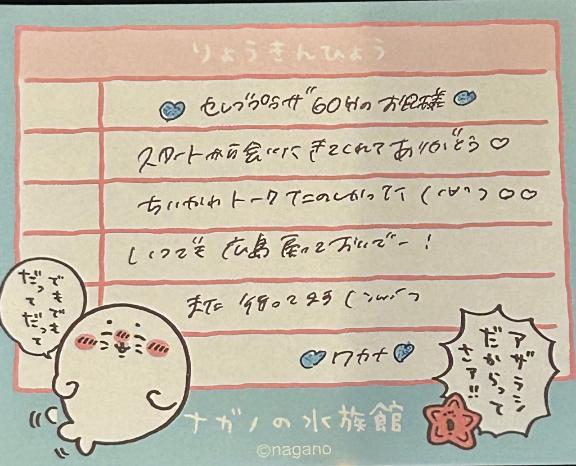 りょうきんひょう
60分のお姫様
スタートから会いにきてくれてありがとう♡
ちいかわトークでこのしかってィ ♡♡
いつでも広島 帰っておいでー!
また 待ってます
ワカナ
でもでも
だって
だって
アザラシ
だからって
さァ!!
ナガノの水族館
©nagano